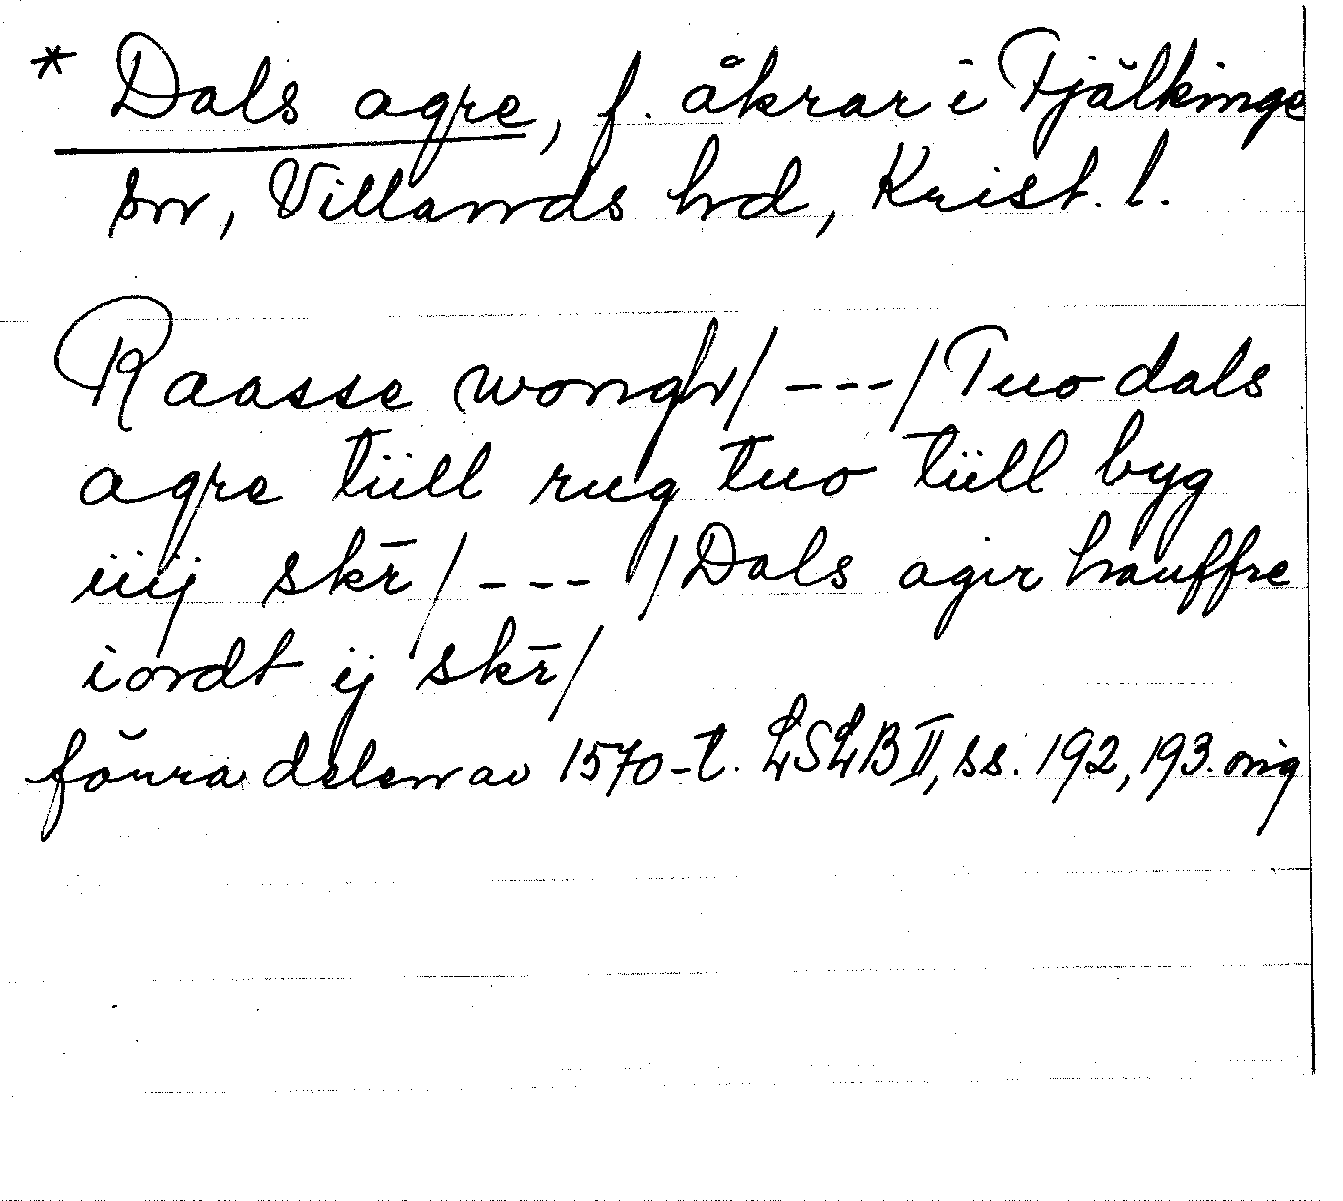 * Dals agre, f. åkrar i Fjälkinge
sn, Villands hd, Krist. l.
Raasse wongh/ --- / Tuo dals
agre tiill rug tuo tiill byg
iiij skr̄ / --- / Dals agir hauffre
iordt ij skr̄ /
förra delen av 1570-t. LSLB II, ss. 192, 193. orig